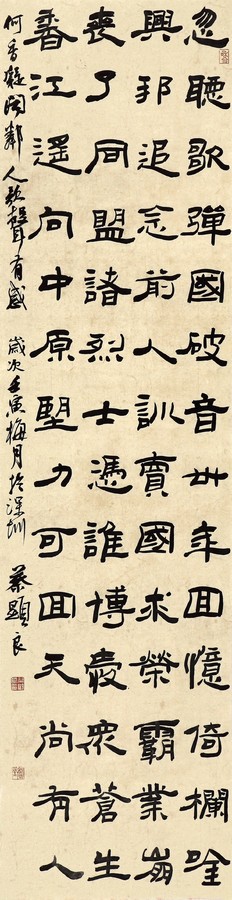 忽聽歌彈國破音卅年回憶倚欄唫
興邦追念前人訓賣國求榮霸業崩
喪了同盟諸烈士憑誰博愛眾蒼生
香江遙向中原朢力可回天尚有人
何香凝聞鄰人歌聲有感 歲次壬寅梅月於深圳 蔡顯良